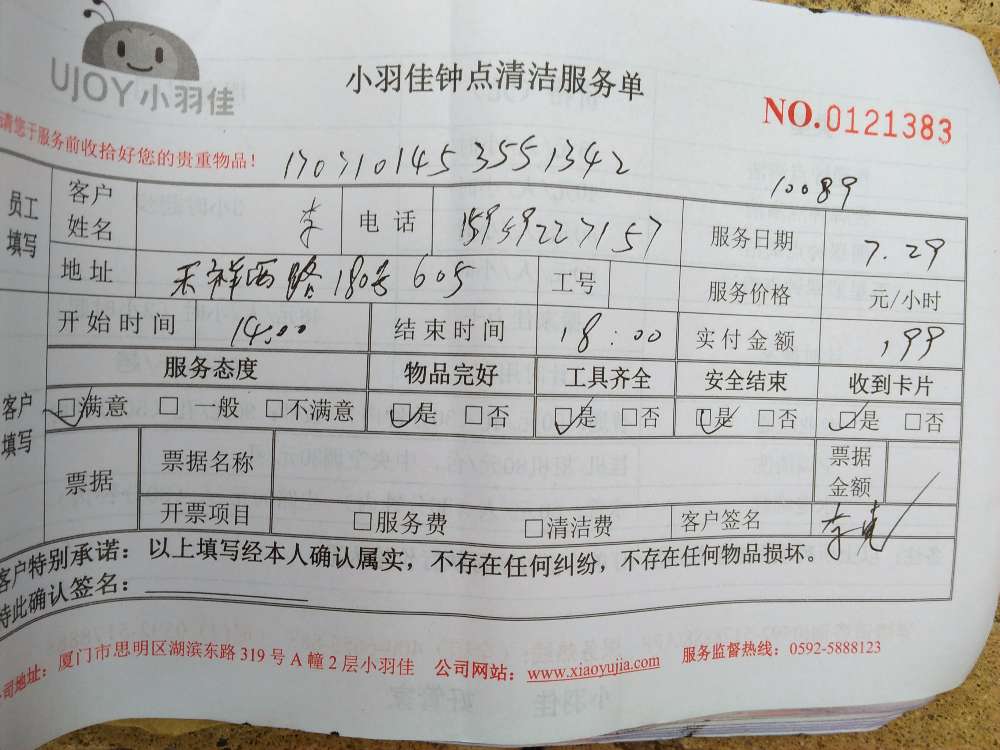 UJOY小羽佳
小羽佳钟点清洁服务单
NO.0121383
请您于服务前收拾好您的贵重物品!
170710145 3551342
10089
员工填写 客户姓名 李 电话 15949227157 服务日期 7.29
地址 禾祥西路180号605 工号 服务价格 元/小时
客户填写 开始时间 14:00 结束时间 18:00 实付金额 199
服务态度 物品完好 工具齐全 安全结束 收到卡片
☑满意 □一般 □不满意 ☑是 □否 ☑是 □否 ☑是 □否 ☑是 □否
票据 票据名称 票据金额
开票项目 □服务费 □清洁费 客户签名 李
客户特别承诺:以上填写经本人确认属实,不存在任何纠纷,不存在任何物品损坏。
特此确认签名:
公司地址:厦门市思明区湖滨东路 319 号 A 幢 2 层小羽佳 公司网站:www.xiaoyujia.com 服务监督热线:0592-5888123